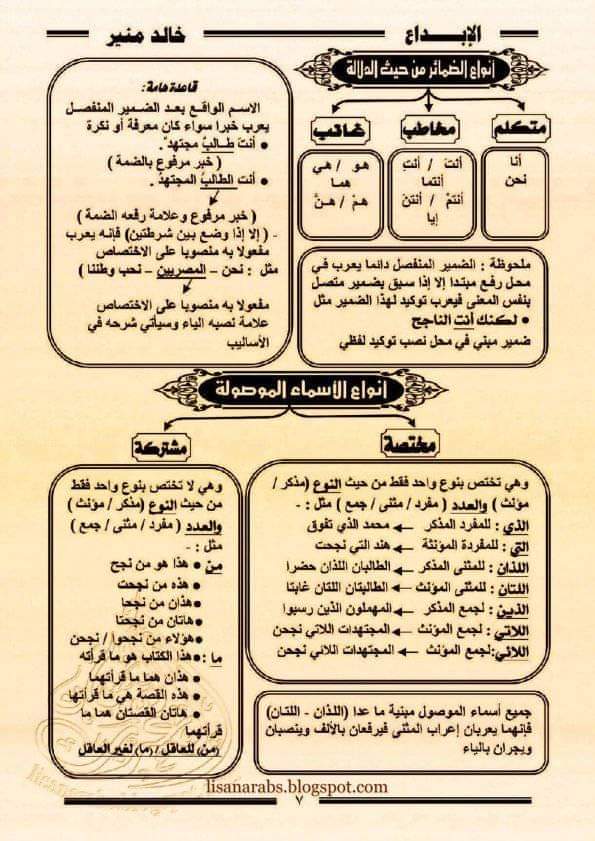 الإبـــداع
خالد منير
أنواع الضمائر من حيث الدلالة
متكلم
مخاطب
غائب
أنا
نحن
أنتَ / أنتِ
أنتما
أنتمْ / أنتنَّ
إيا
هو / هي
هما
همْ / هـنَّ
ملحوظة : الضمير المنفصل دائما يعرب في
محل رفع مبتدا إلا إذا سبق بضمير متصل
بنفس المعنى فيعرب توكيد لهذا الضمير مثل
● لكنك أنت الناجح
ضمير مبني في محل نصب توكيد لفظي
قاعدة هامة:
الاسم الواقع بعد الضمير المنفصل
يعرب خبرا سواء كان معرفة أو نكرة
● أنت طـالبٌ مجتهدٌ .
( خبر مرفوع بالضمة )
● أنت الطالبُ المجتهدُ .
( خبر مرفوع وعلامة رفعه الضمة )
- ( إلا إذا وضع بين شرطتين) فإنه يعرب
مفعولا به منصوبا على الاختصاص
مثل : نحن – المصريين – نحب وطننا )
مفعولا به منصوبا على الاختصاص
علامة نصبه الياء وسيأتي شرحه في
الأساليب
أنواع الأسماء الموصولة
مختصة
مشتركة
وهي تختص بنوع واحد فقط من حيث النوع (مذكر /
مؤنث ) والعدد ( مفرد / مثنى / جمع ) مثل : -
الذي : للمفرد المذكر ← محمد الذي تفوق
التي : للمفردة المؤنثة ← هند التي نجحت
اللذان : للمثنى المذكر ← الطالبان اللذان حضرا
اللتان : للمثنى المؤنث ← الطالبتان اللتان غابتا
الذين : لجمع المذكر ← المهملون الذين رسبوا
اللاتي : لجمع المؤنث ← المجتهدات اللاتي نجحن
اللائي:لجمع المؤنث ← المجتهدات اللائي نجحن
جميع أسماء الموصول مبنية ما عدا (اللذان - اللتان)
فإنهما يعربان إعراب المثنى فيرفعان بالألف وينصبان
ويجران بالياء
وهي لا تختص بنوع واحد فقط
من حيث النوع (مذكر / مؤنث )
والعدد ( مفرد / مثنى / جمع )
مثل : -
من ● هذا هو من نجح
● هذه من نجحت
● هذان من نجحا
● هاتان من نجحتا
● هؤلاء من نجحوا / نجحن
ما : ● هذا الكتاب هو ما قرأته
● هذان هما ما قرأتهما
● هذه القصة هي ما قرأتها
● هاتان القصتان هما ما
قرأتهما
(من) للعاقل / (ما) لغير العاقل
lisanarabs.blogspot.com
٧